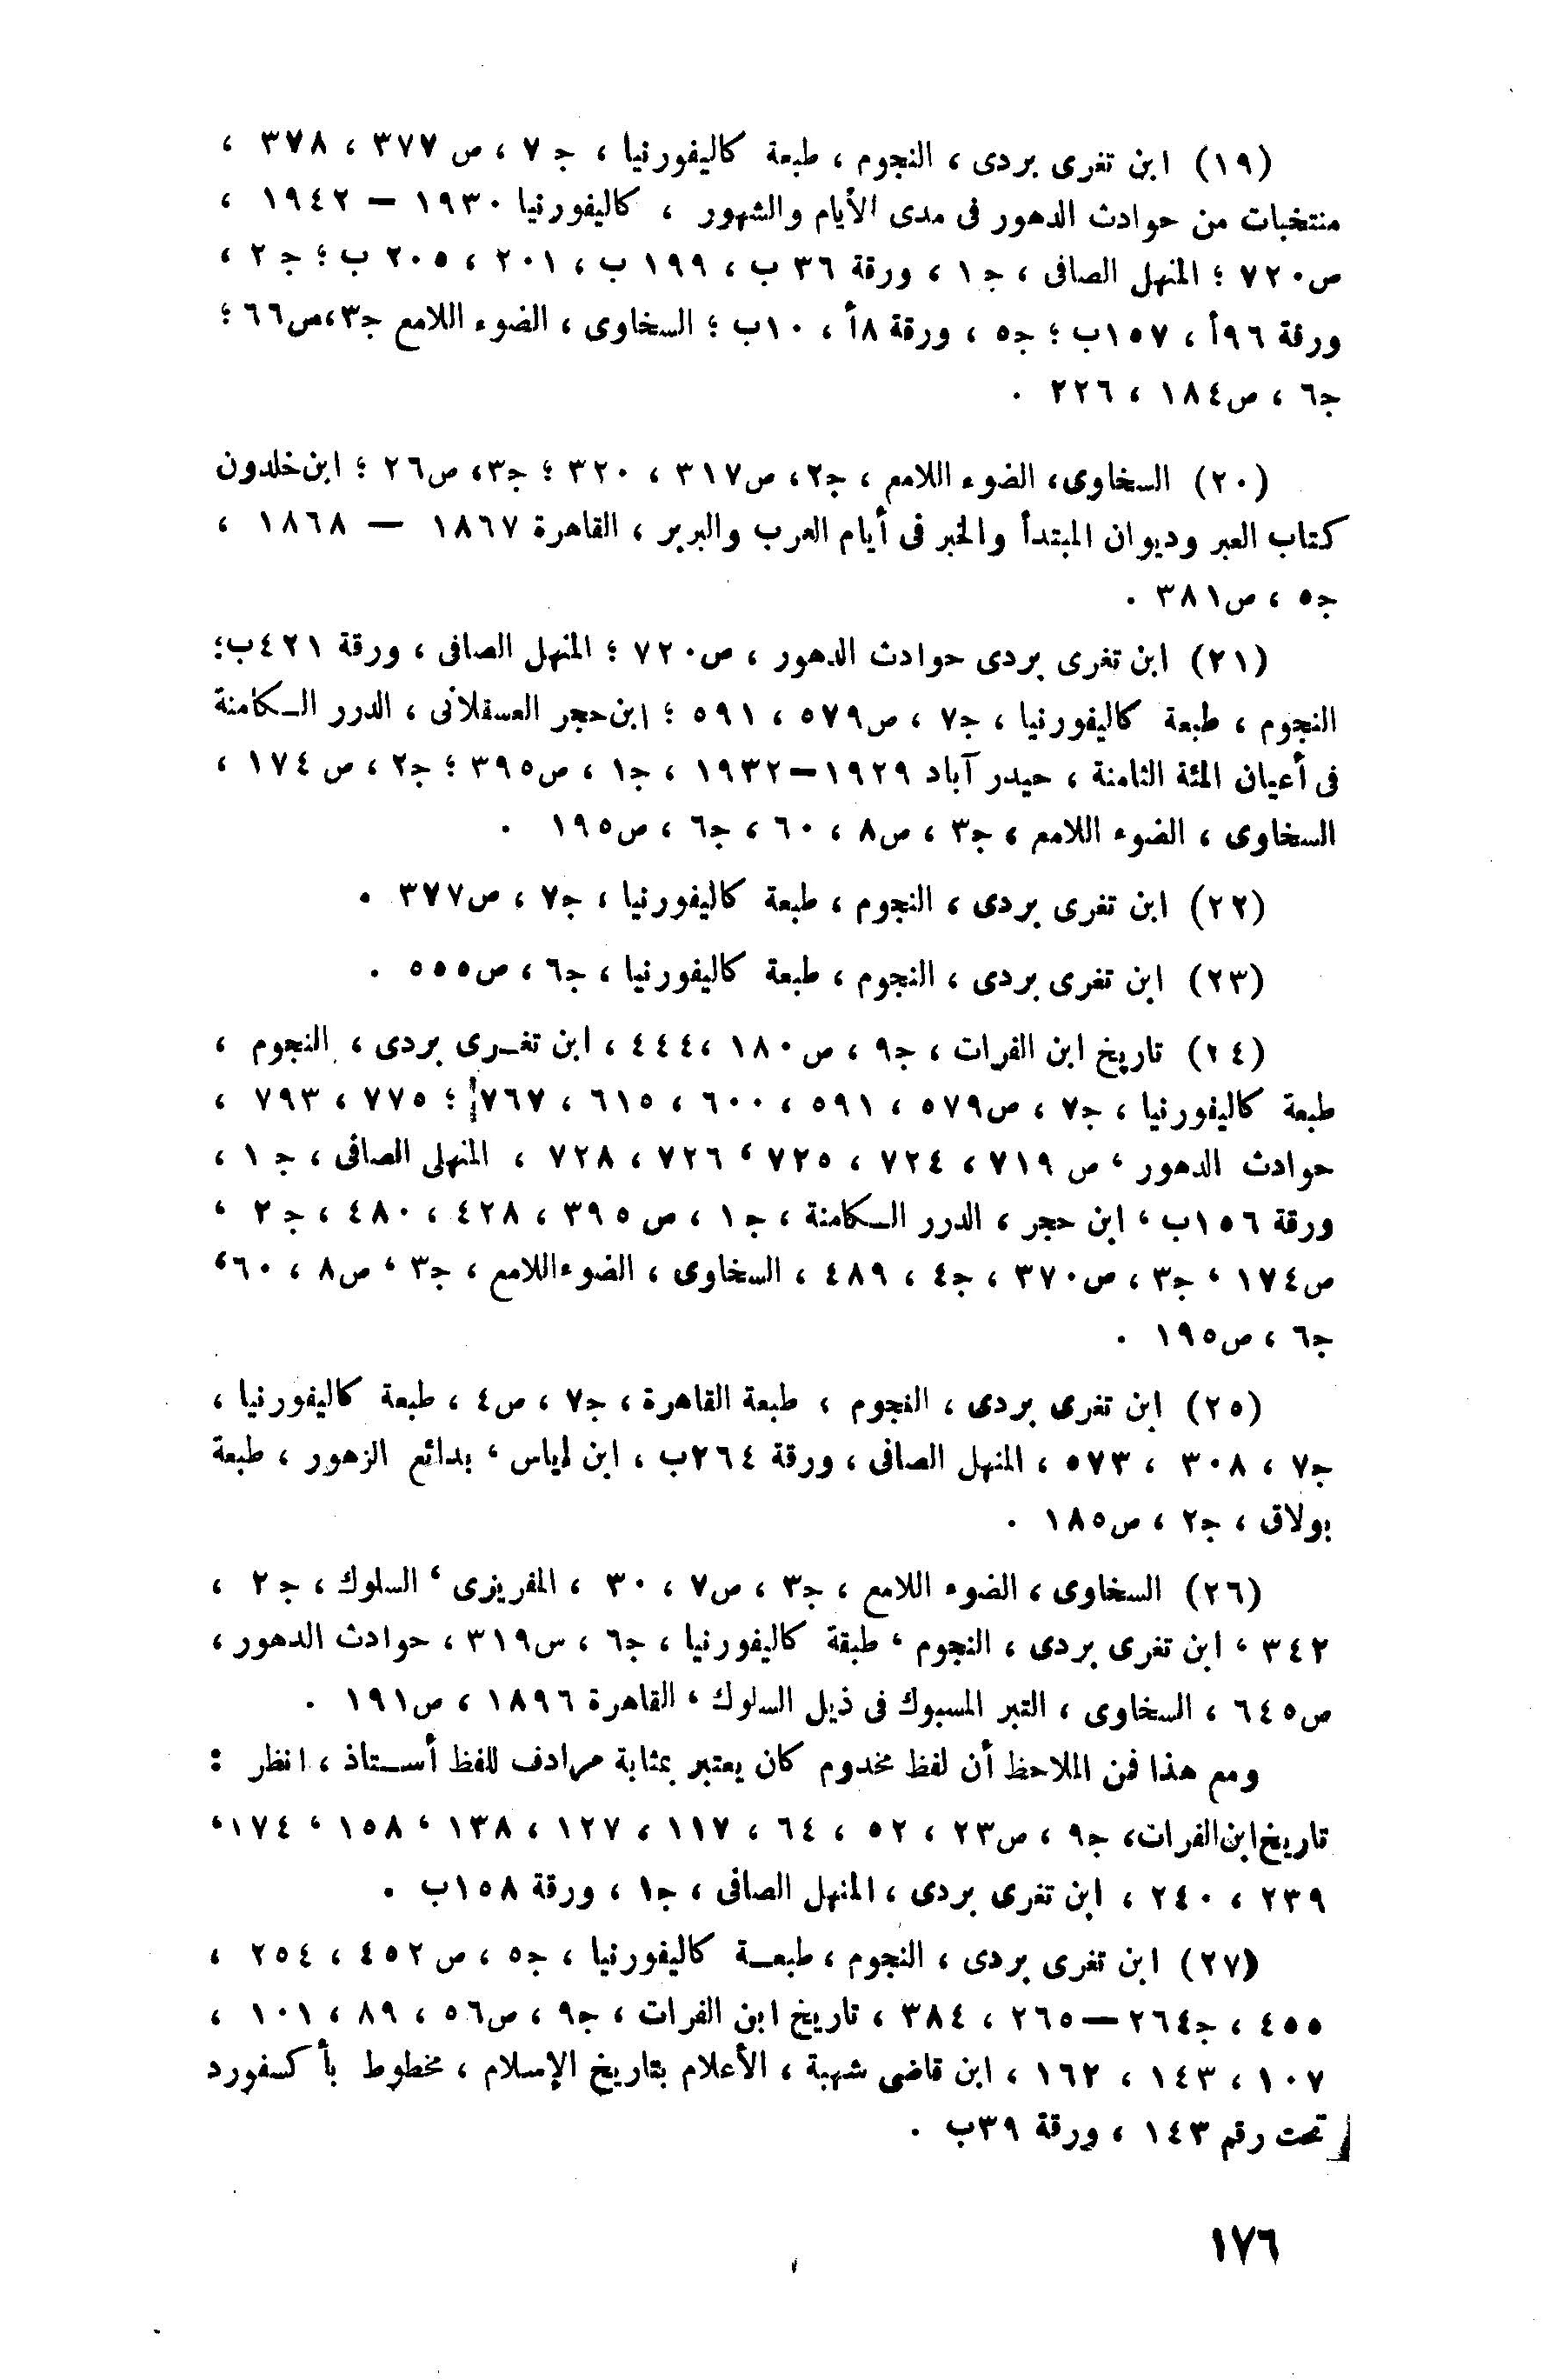 (١٩) ابن تغرى بردى ، النجوم ، طبعة كاليفورنيا ، ج ٧ ، ص ٣٧٧ ، ٣٧٨ ،
منتخبات من حوادث الدهور فى مدى الأيام والشهور ، كاليفورنيا ١٩٣٠ — ١٩٤٢ ،
ص٧٢٠ ؛ المنهل الصافى ، ج ١ ، ورقة ٣٦ ب ، ١٩٩ ب ، ٢٠١ ، ٢٠٥ ب ؛ ج ٢ ،
ورقة ٩٦أ ، ١٥٧ب ؛ ج٥ ، ورقة ٨أ ، ١٠ب ؛ السخاوى ، الضوء اللامع ج٣،ص٦٦ ؛
ج٦ ، ص١٨٤ ، ٢٢٦ .
(٢٠) السخاوى، الضوء اللامع ، ج٢، ص٣١٧ ، ٣٢٠ ؛ ج٣، ص٢٦ ؛ ابن خلدون
كتاب العبر وديوان المبتدأ والخبر فى أيام العرب والبربر ، القاهرة ١٨٦٧ — ١٨٦٨ ،
ج٥ ، ص٣٨١ .
(٢١) ابن تغرى بردى حوادث الدهور ، ص٧٢٠ ؛ المنهل الصافى ، ورقة ٤٢١ب؛
النجوم ، طبعة كاليفورنيا ، ج٧ ، ص٥٧٩ ، ٥٩١ ؛ ابن حجر العسقلانى ، الدرر الـكامنة
فى أعيان المئة الثامنة ، حيدر آباد ١٩٢٩–١٩٣٢ ، ج١ ، ص٣٩٥ ؛ ج٢ ، ص ١٧٤ ،
السخاوى ، الضوء اللامع ، ج٣ ، ص٨ ، ٦٠ ، ج٦ ، ص١٩٥ .
(٢٢) ابن تغرى بردى ، النجوم ، طبعة كاليفورنيا ، ج٧ ، ص٣٧٧ .
(٢٣) ابن تغرى بردى ، النجوم ، طبعة كاليفورنيا ، ج٦ ، ص٥٥٥ .
(٢٤) تاريخ ابن الفرات ، ج٩ ، ص١٨٠ ،٤٤٤ ، ابن تغـرى بردى ، النجوم ،
طبعة كاليفورنيا ، ج٧ ، ص٥٧٩ ، ٥٩١ ، ٦٠٠ ، ٦١٥ ، ٧٦٧ ؛ ٧٧٥ ، ٧٩٣ ،
حوادث الدهور ، ص ٧١٩ ، ٧٢٤ ، ٧٢٥ ، ٧٢٦ ، ٧٢٨ ، المنهلى الصافى ، ج ١ ،
ورقة ١٥٦ب ، ابن حجر ، الدرر الـكامنة ، ج١ ، ص ٣٩٥ ، ٤٢٨ ، ٤٨٠ ، ج ٢ ،
ص١٧٤ ، ج٣ ، ص٣٧٠ ، ج٤ ، ٤٨٩ ، السخاوى ، الضوءاللامع ، ج٣ ، ص٨ ، ٦٠،
ج٦ ، ص١٩٥ .
(٢٥) ابن تغرى بردى ، النجوم ، طبعة القاهرة ، ج٧ ، ص٤ ، طبعة كاليفورنيا ،
ج٧ ، ٣٠٨ ، ٥٧٣ ، المنهل الصافى ، ورقة ٢٦٤ب ، ابن لمياس ، بدائع الزهور ، طبعة
بولاق ، ج٢ ، ص١٨٥ .
(٢٦) السخاوى ، الضوء اللامع ، ج٣ ، ص٧ ، ٣٠ ، المقريزى ، السلوك ، ج ٢ ،
٣٤٢ ، ابن تغرى بردى ، النجوم ، طبقة كاليفورنيا ، ج٦ ، س٣١٩ ، حوادث الدهور ،
ص٦٤٥ ، السخاوى ، التبر المسبوك فى ذيل السلوك ، القاهرة ١٨٩٦ ، ص١٩١ .
ومع هذا فمن الملاحظ أن لفظ مخدوم كان يعتبر بمثابة مرادف للفظ أسـتاذ ، انظر :
تاريخ ابن الفرات، ج٩ ، ص٢٣ ، ٥٢ ، ٦٤ ، ١١٧ ، ١٢٧ ، ١٣٨ ، ١٥٨ ، ١٧٤،
٢٣٩ ، ٢٤٠ ، ابن تغرى بردى ، المنهل الصافى ، ج١ ، ورقة ١٥٨ب .
(٢٧) ابن تغرى بردى ، النجوم ، طبعـة كاليفورنيا ، ج٥ ، ص ٤٥٢ ، ٢٥٤ ،
٤٥٥ ، ج٢٦٤—٢٦٥ ، ٣٨٤ ، تاريخ ابن الفرات ، ج٩ ، ص٥٦ ، ٨٩ ، ١٠١ ،
١٠٧ ، ١٤٣ ، ١٦٢ ، ابن قاضى شهبة ، الأعلام بتاريخ الإسلام ، مخطوط بأكسفورد
تحت رقم ١٤٣ ، ورقة ٣٩ب .
١٧٦